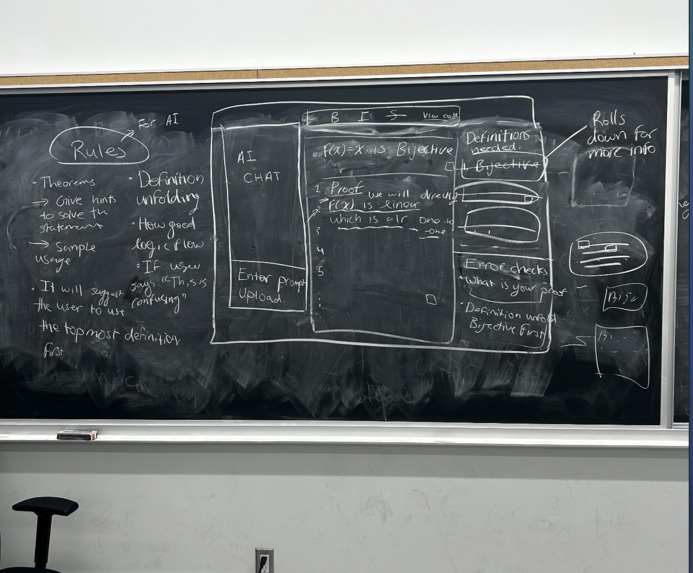 For AI
Rules
· Theorems
→ Give hints
to solve the
statement
→ Sample
usage
· It will suggest
the user to use
the topmost definition
first
· Definition
unfolding
· How good
logic flow
If user
says "This is
confusing"
AI
CHAT
Enter prompt
Upload.
B I S View code
F(x)=x is Bijective
1 Proof we will directly
F(x) is linear
which is also one-to
-one
3
4
5
Definitions
needed.
1. Bijective
Error checks
· What is your proof
· Definition unfold
Bijective First
Rolls
down for
more info
Bije
Bi...